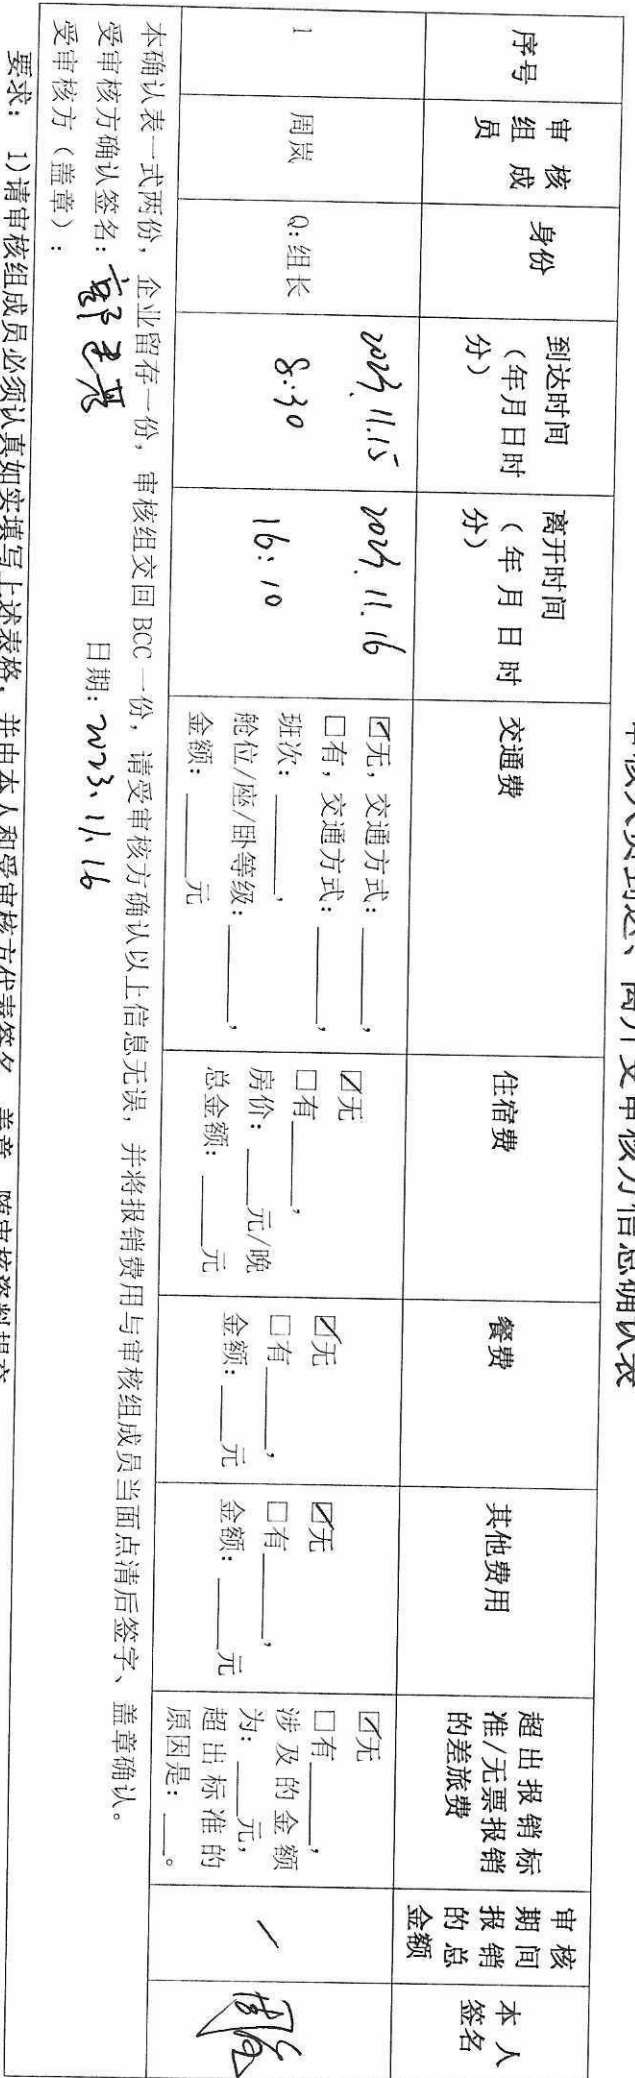 审核人员到达、离开受审核方信息确认表
序号
审核组成员
身份
到达时间（年月日时分）
离开时间（年月日时分）
交通费
住宿费
餐费
其他费用
超出报销标准/无票报销的差旅费
审核期间报销的总金额
本人签名
1
周岚
Q:组长
2023.11.15
8:30
2023.11.16
16:10
☑无，交通方式：______，
□有，交通方式：______，
班次：______，
舱位/座/卧等级：______，
金额：______元
☑无
□有______，
房价：____元/晚
总金额：____元
☑无
□有______，
金额：____元
☑无
□有______，
金额：____元
☑无
□有______，
涉及的金额
为：____元，
超出标准的
原因是：__。
/
本确认表一式两份，企业留存一份，审核组交回BCC一份，请受审核方确认以上信息无误，并将报销费用与审核组成员当面点清后签字、盖章确认。
受审核方确认签名：
日期：2023.11.16
受审核方（盖章）：
要求：1)请审核组成员必须认真如实填写上述表格，并由本人和受审核方代表签名、盖章，随审核资料提交